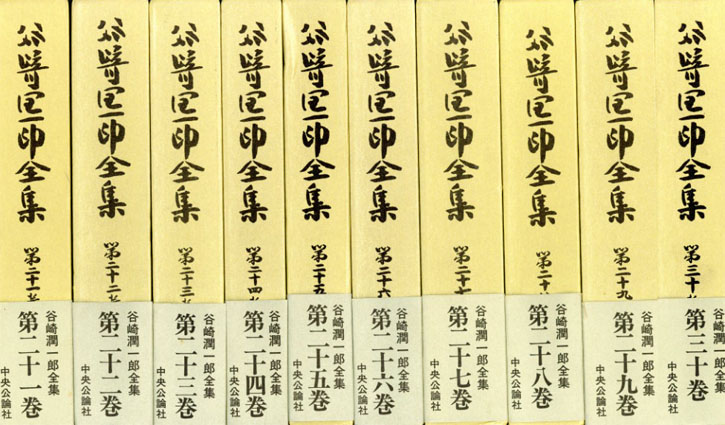 谷崎潤一郎全集
第二十一巻
谷崎潤一郎全集
第二十一巻
中央公論社
谷崎潤一郎全集
第二十二巻
谷崎潤一郎全集
第二十二巻
中央公論社
谷崎潤一郎全集
第二十三巻
谷崎潤一郎全集
第二十三巻
中央公論社
谷崎潤一郎全集
第二十四巻
谷崎潤一郎全集
第二十四巻
中央公論社
谷崎潤一郎全集
第二十五
谷崎潤一郎全集
第二十五巻
中央公論社
谷崎潤一郎全集
第二十六
谷崎潤一郎全集
第二十六巻
中央公論社
谷崎潤一郎全集
第二十七
谷崎潤一郎全集
第二十七巻
中央公論社
谷崎潤一郎全集
第二十
谷崎潤一郎全集
第二十八巻
中央公論社
谷崎潤一郎全集
第二十九
谷崎潤一郎全集
第二十九巻
中央公論社
谷崎潤一郎全集
第三十巻
谷崎潤一郎全集
第三十巻
中央公論社